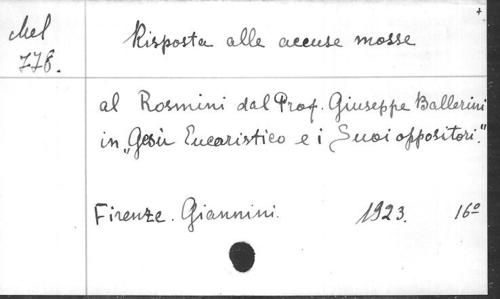 Mel
778.
Risposta alle accuse mosse
al Rosmini dal Prof. Giuseppe Ballerini
in „Gesù Eucaristico e i Suoi oppositori."
Firenze. Giannini. 1923. 16º